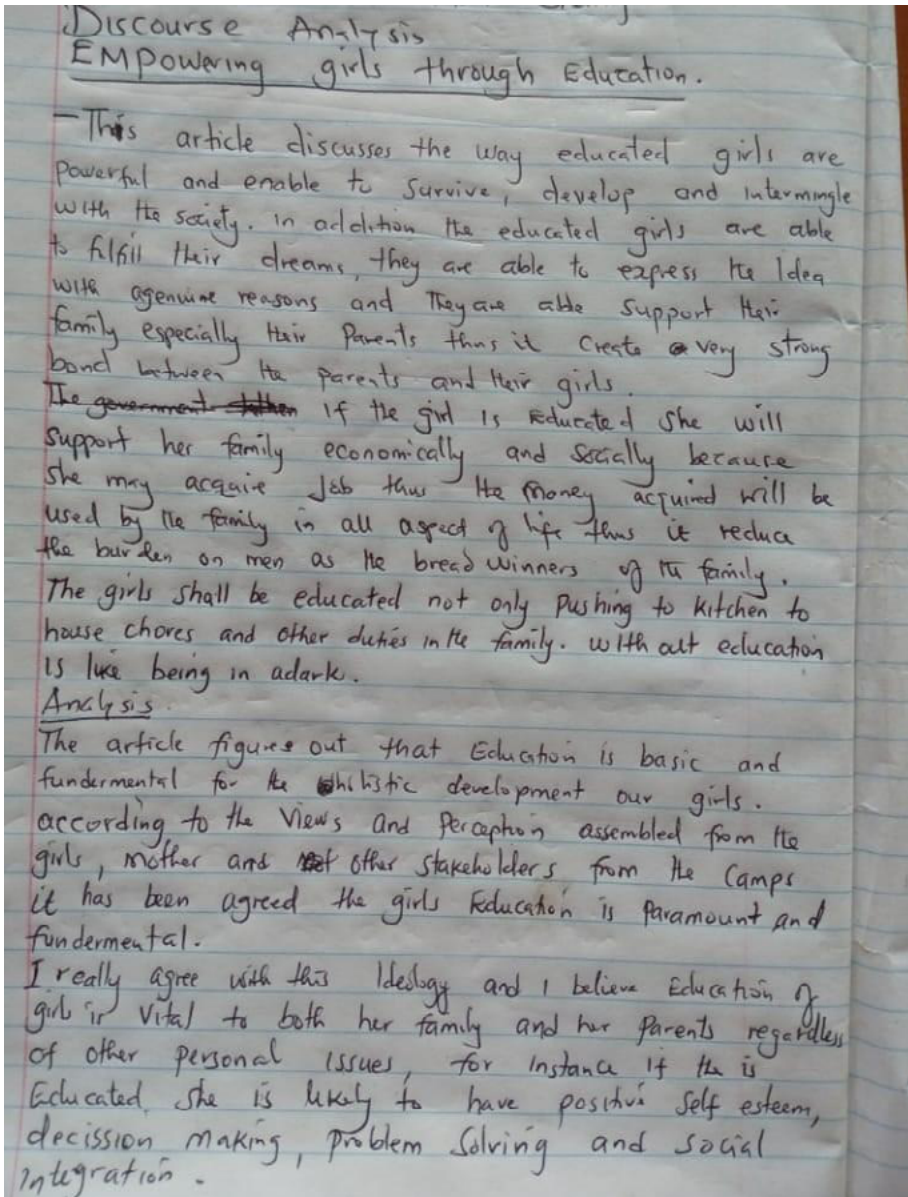 Discourse Analysis
EMPowering girls through Education.
- This article discusses the way educated girls are
powerful and enable to survive, develop and intermingle
with the society. in addition the educated girls are able
to fulfill their dreams, they are able to express the Idea
with agenuine reasons and They are able support their
family especially their Parents thus it create a very strong
bond between the parents and their girls.
The government If the girl is Educated she will
support her family economically and socially because
she may acquire Job thus the money acquired will be
used by the family in all aspect of life thus it reduce
the burden on men as the bread winners of the family.
The girls shall be educated not only Pushing to kitchen to
house chores and other duties in the family. with out education
is like being in adark.
Analysis
The article figures out that Education is basic and
fundermental for the holistic development our girls.
according to the Views and Perception assembled from the
girls, mother and other stakeholders from the Camps
it has been agreed the girls Education is Paramount and
fundermental.
I really agree with this Ideology and I believe Education of
girl is Vital to both her family and her Parents regardless
of other personal issues, for instance if the is
Educated she is likely to have positive self esteem,
decission making, problem solving and social
integration.